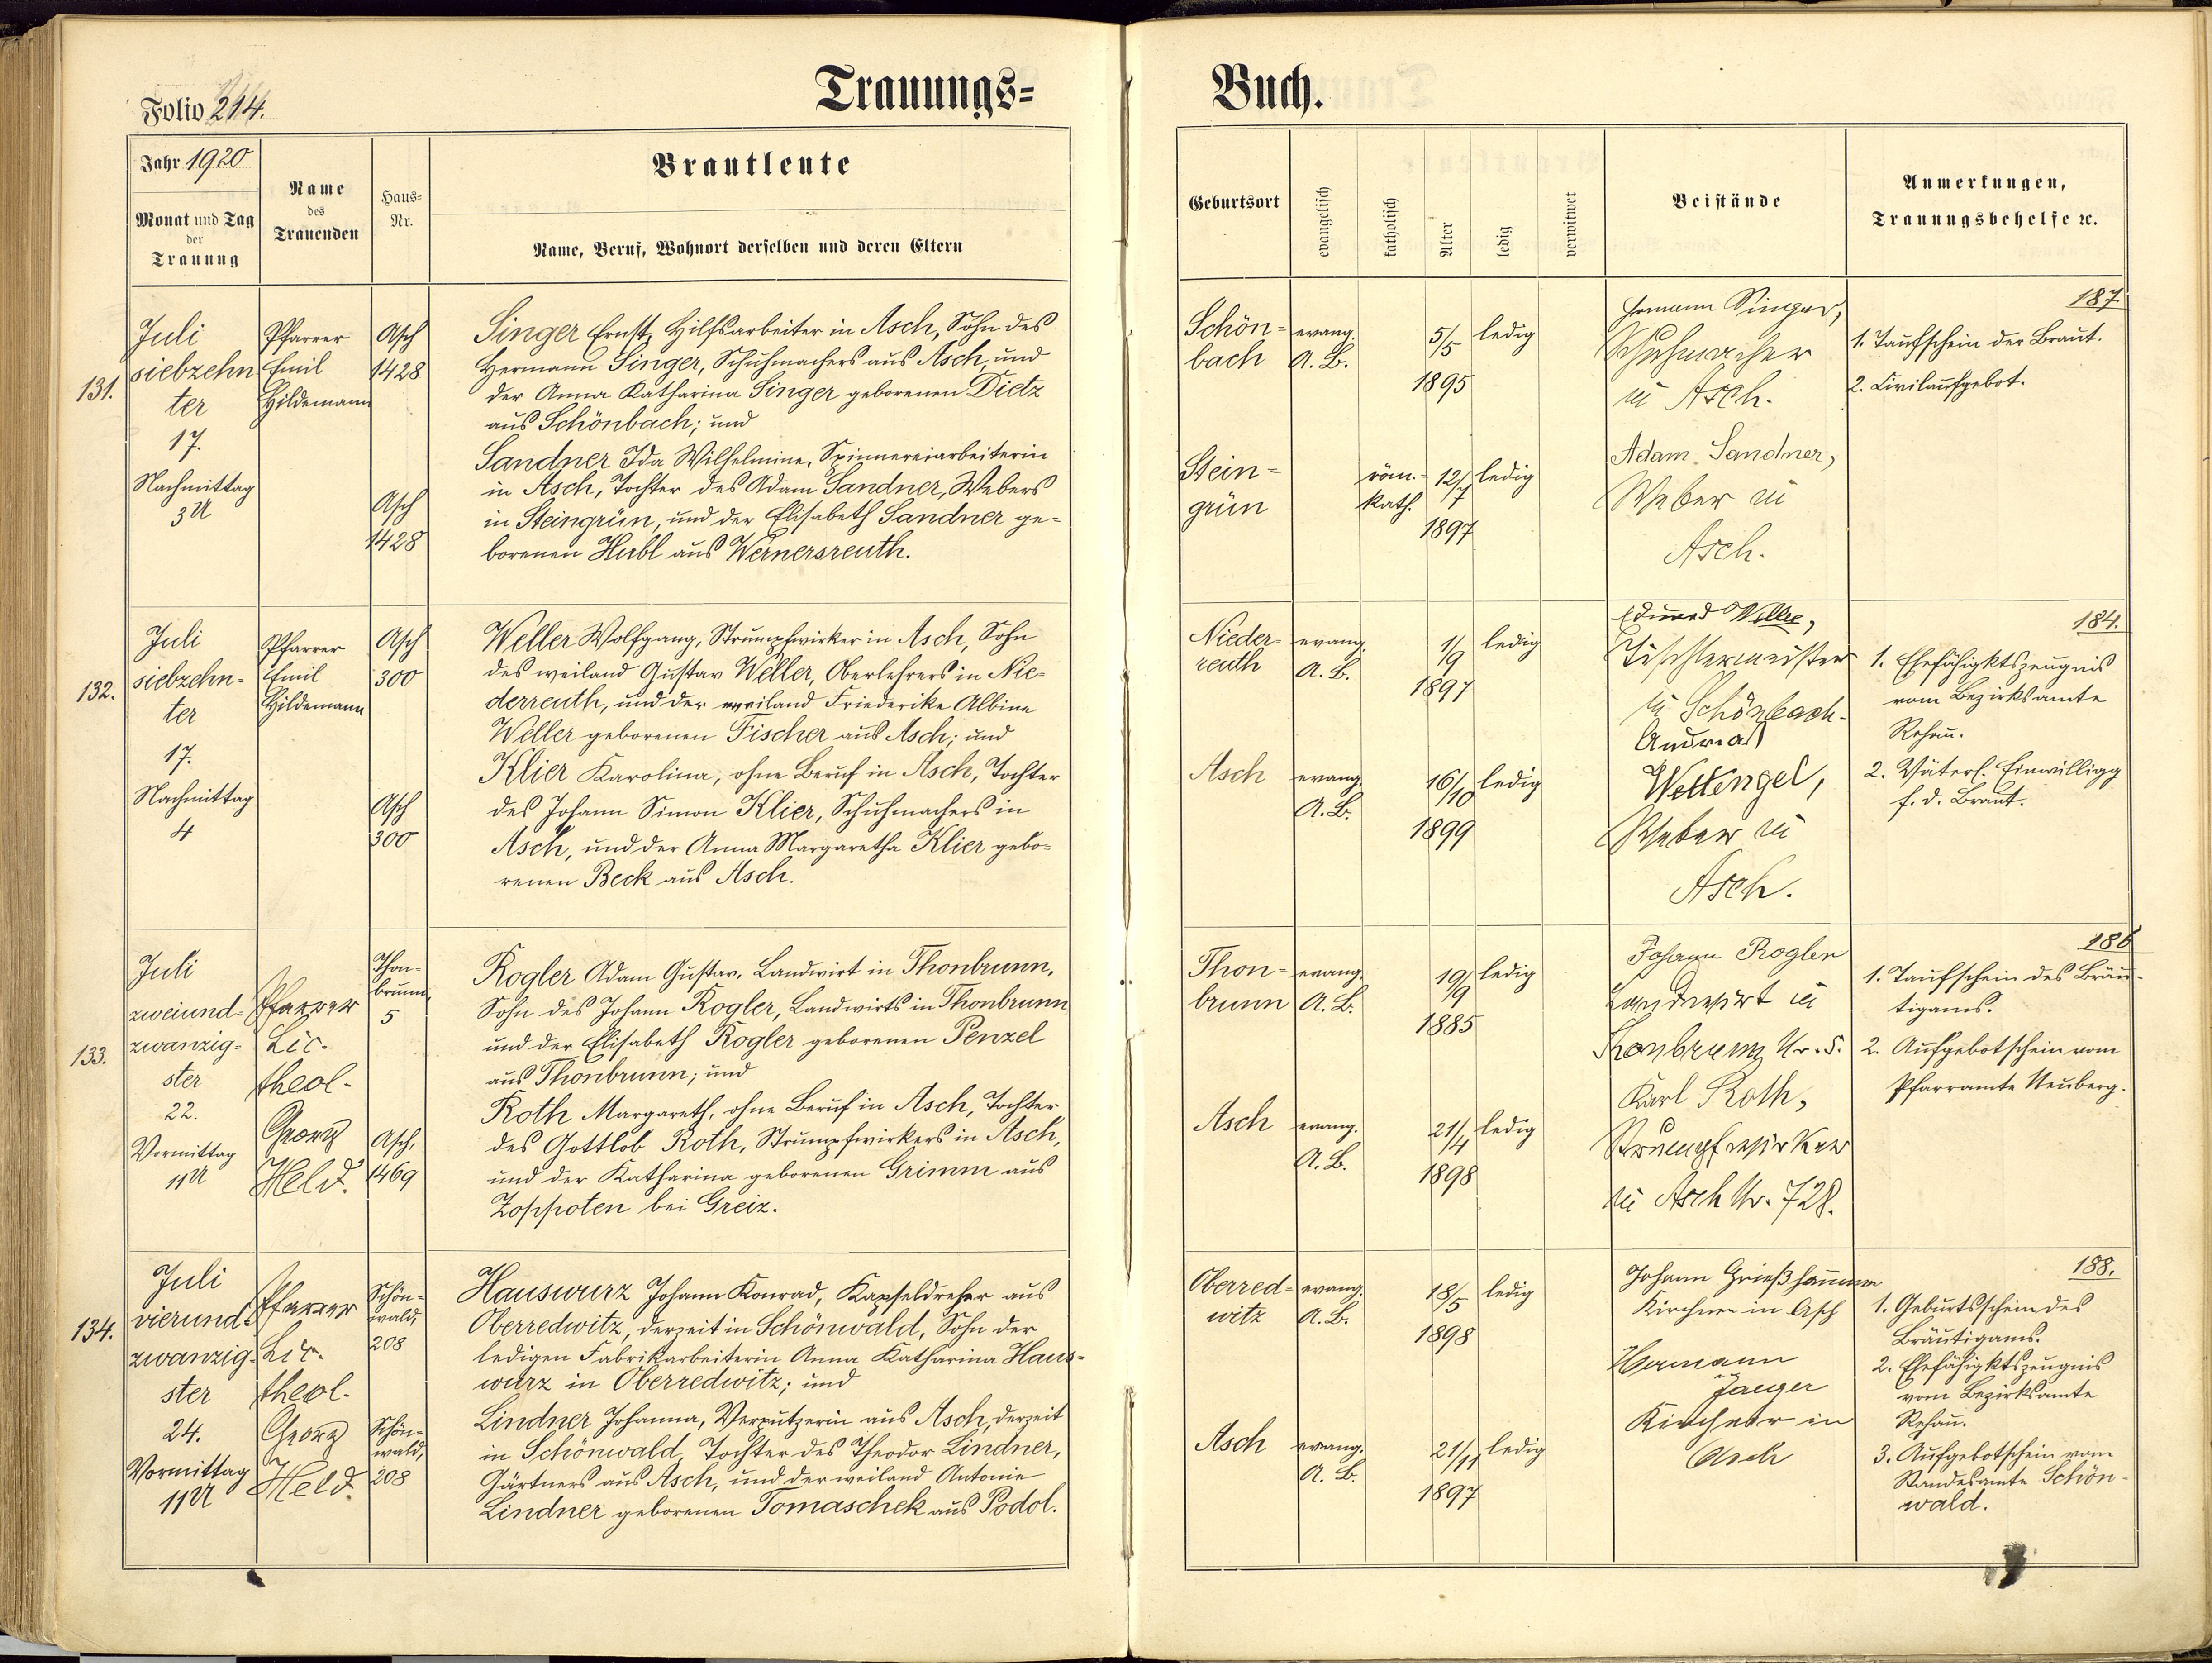 Folio 214.
Trauungs=
Jahr 1920
Monat und Tag
der
Trauung
Name
des
Trauenden
Haus=
Nr.
Brautleute
Name, Beruf, Wohnort derselben und deren Eltern
131.
Juli
siebzehn
ter
17.
Nachmittag
3 U
Pfarrer
Emil
Hildemann
Asch
1428
Asch
1428
Singer Ernst, Hilfsarbeiter in Asch, Sohn des
Hermann Singer, Schuhmachers aus Asch, und
der Anna Katharina Singer geborenen Dietz
aus Schönbach; und
Sandner Ida Wilhelmine, Spinnereiarbeiterin
in Asch, Tochter des Adam Sandner, Webers
in Steingrün, und der Elisabeth Sandner ge-
borenen Hubl aus Wernersreuth.
132.
Juli
siebzehn-
ter
17.
Nachmittag
4
Pfarrer
Emil
Hildemann
Asch
300
Asch
300
Weller Wolfgang, Strumpfwirker in Asch, Sohn
des weiland Gustav Weller, Oberlehrers in Nie-
derreuth, und der weiland Friederike Albine
Weller geborenen Fischer aus Asch; und
Klier Karolina, ohne Beruf in Asch, Tochter
des Johann Simon Klier, Schuhmachers in
Asch, und der Anna Margaretha Klier gebo-
renen Beck aus Asch.
133.
Juli
zweiund-
zwanzig-
ster
22.
Vormittag
11 U
Pfarrer
Lic.
theol.
Georg
Held.
Thon-
brunn,
5
Asch,
1469
Rogler Adam Gustav, Landwirt in Thonbrunn,
Sohn des Johann Rogler, Landwirts in Thonbrunn
und der Elisabeth Rogler geborenen Penzel
aus Thonbrunn; und
Roth Margareth, ohne Beruf in Asch, Tochter
des Gottlob Roth, Strumpfwirkers in Asch,
und der Katharina geborenen Grimm aus
Zoppoten bei Greiz.
134.
Juli
vierund-
zwanzig-
ster
24.
Vormittag
11 U
Pfarrer
Lic.
theol.
Georg
Held.
Schön-
wald,
208
Schön-
wald,
208
Hauswurz Johann Konrad, Kapseldreher aus
Oberredwitz, derzeit in Schönwald, Sohn der
ledigen Fabrikarbeiterin Anna Katharina Haus-
wurz in Oberredwitz; und
Lindner Johanna, Verputzerin aus Asch, derzeit
in Schönwald, Tochter des Theodor Lindner,
Gärtners aus Asch, und der weiland Antonie
Lindner geborenen Tomaschek aus Podol.
Buch.
Geburtsort
evangelisch
katholisch
Alter
ledig
verwitwet
Beistände
Anmerkungen,
Trauungsbehelfe ꝛc.
Schön-
bach
evang.
A. B.
5/5
1895
ledig
Stein-
grün
röm.-
kath.
12/7
1897
ledig
Hermann Singer,
Schuhmacher
in Asch.
Adam Sandner,
Weber in
Asch.
187
1. Taufschein der Braut.
2. Civilaufgebot.
Nieder-
reuth
evang.
A. B.
1/9
1897
ledig
Asch
evang.
A. B.
16/10
1899
ledig
Eduard Weller,
Tischlermeister
in Schönbach.
Andreas
Wettengel,
Weber in
Asch.
184.
1. Ehefähigktszeugnis
vom Bezirksamte
Rehau.
2. Väterl. Einwilligg
f. d. Braut.
Thon-
brunn
evang.
A. B.
19/9
1885
ledig
Asch
evang.
A. B.
21/4
1898
ledig
Johann Rogler
Landwirt in
Thonbrunn Nr. 5.
Karl Roth,
Strumpfwirker
in Asch Nr. 728.
186
1. Taufschein des Bräu-
tigams.
2. Aufgebotschein vom
Pfarramte Neuberg.
Oberred-
witz
evang.
A. B.
18/5
1898
ledig
Asch
evang.
A. B.
21/11
1897
ledig
Johann Grießhammer
Kirchner in Asch
Hermann
Jaeger
Kirchner in
Asch
188.
1. Geburtsschein des
Bräutigams.
2. Ehefähigktszeugnis
vom Bezirksamte
Rehau.
3. Aufgebotschein vom
Standesamte Schön-
wald.